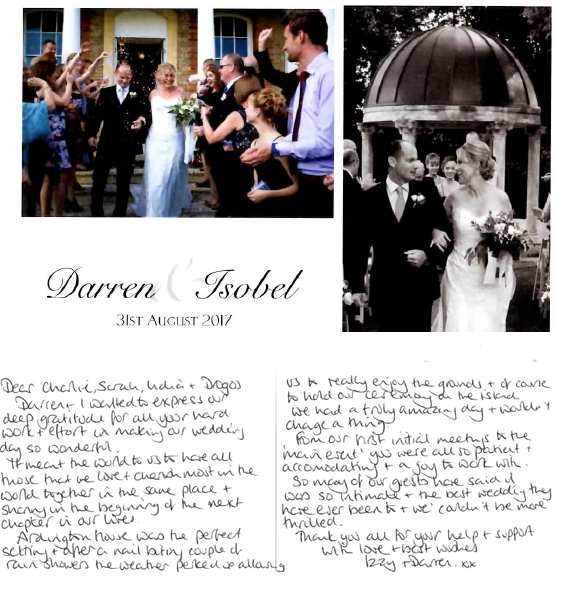 Darren & Isobel
31ST AUGUST 2017
Dear Charlie, Sarah, India + Dragos
Darren + I wanted to express our
deep gratitude for all your hard
work + effort in making our wedding
day so wonderful.
It meant the world to us to have all
those that we love + cherish most in the
world together in the same place +
sharing in the beginning of the next
chapter in our lives.
Ardington house was the perfect
setting + after a nail biting couple of
rain showers the weather perked up allowing
us to really enjoy the grounds, + of course
to hold our ceremony on the island
we had a truly amazing day + wouldn't
change a thing.
From our first initial meeting to the
'main event' you were all so patient +
accomodating + a joy to work with.
So many of our guests have said it
was so intimate + the best wedding they
have ever been to + we couldn't be more
thrilled.
Thank you all for your help + support
with love + best wishes
Izzy + Darren. xx